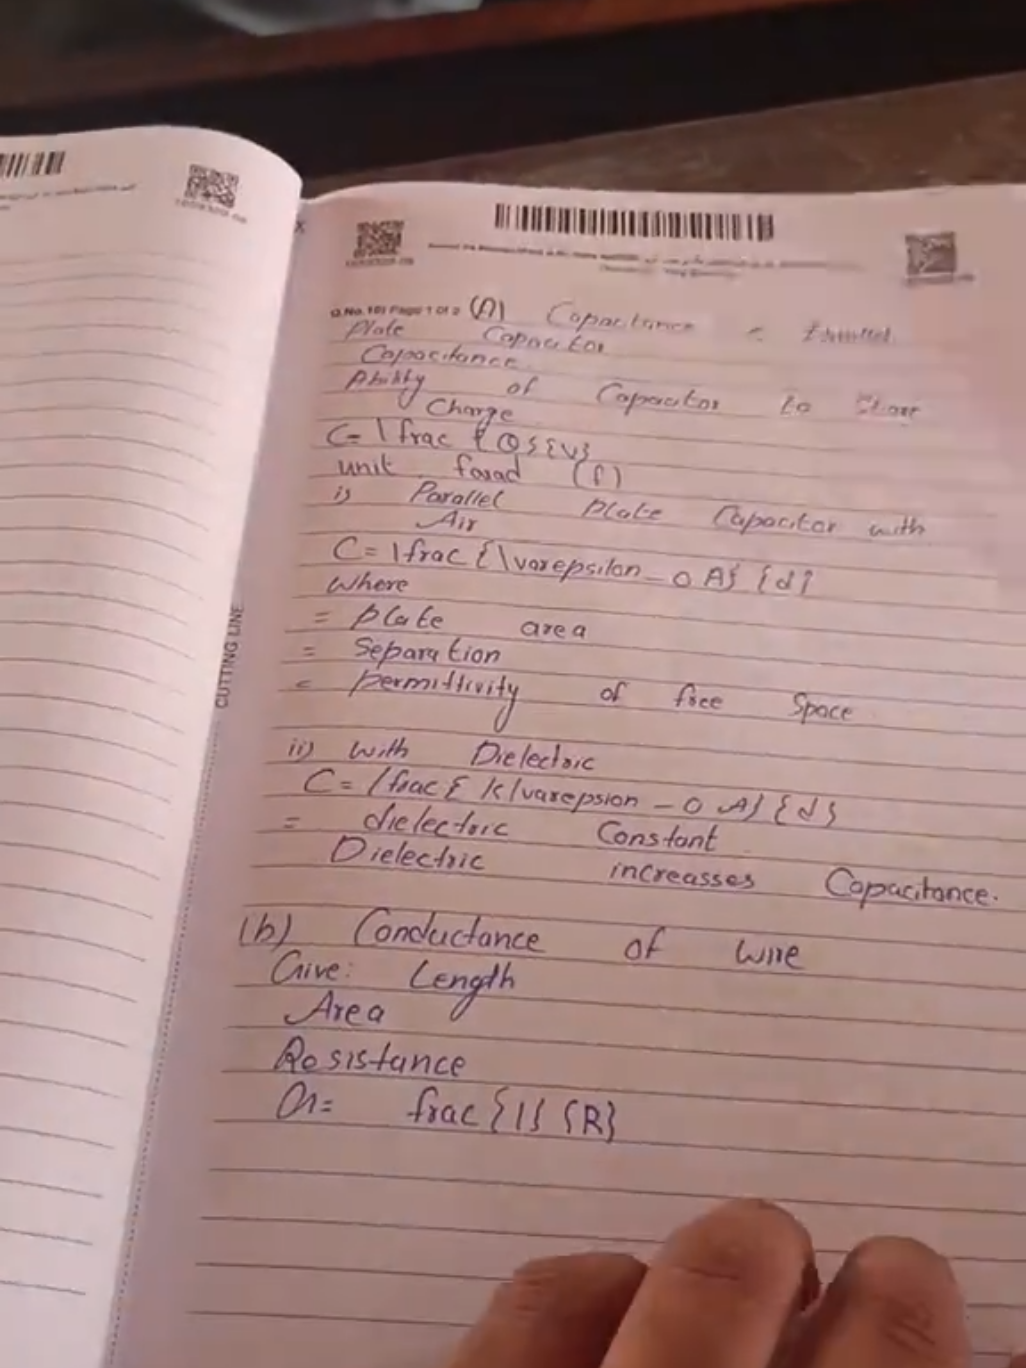 Q.No. 10) Page 1 of 2 (A) Capacitance
Plate Capacitor
Capacitance
Ability of Capacitor to Store
Charge
C= \frac {Q}{V}
unit farad (f)
i) Parallel Plate Capacitor with
Air
C= \frac {\varepsilon_0 A} {d}
Where
= plate area
= Separation
= permittivity of free Space
ii) with Dielectric
C= /frac { k/varepsion_0 A} {d}
= dielectric Constant
Dielectric increasses Capacitance.
(b) Conductance of wire
Give: Length
Area
Resistance
G= frac {1} {R}
CUTTING LINE